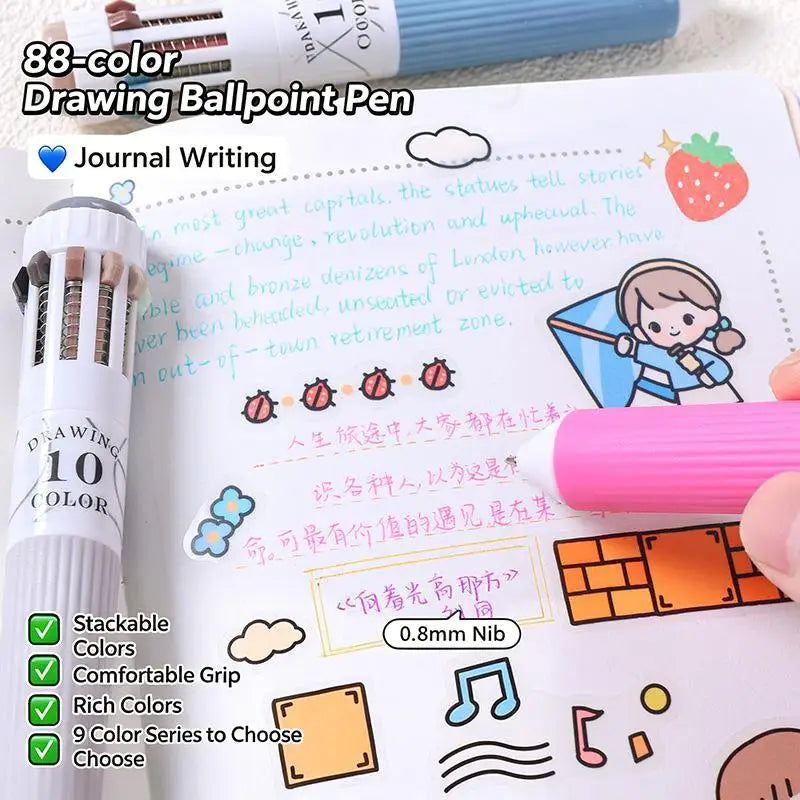 88-color
Drawing Ballpoint Pen
💙 Journal Writing
COLOR
1
DRAWING
10
COLOR
In most great capitals, the statues tell stories
regime - change, revolution and upheaval. The
and bronze denizens of London however have
been beheaded, unseated or evicted to
out-of-town retirement zone.
人生旅途中,大家都在忙着
识各种人,以为这是
命。可最有价值的遇见是在某
《向着光亮那方》
0.8mm Nib
Stackable
Colors
Comfortable Grip
Rich Colors
9 Color Series to Choose
Choose